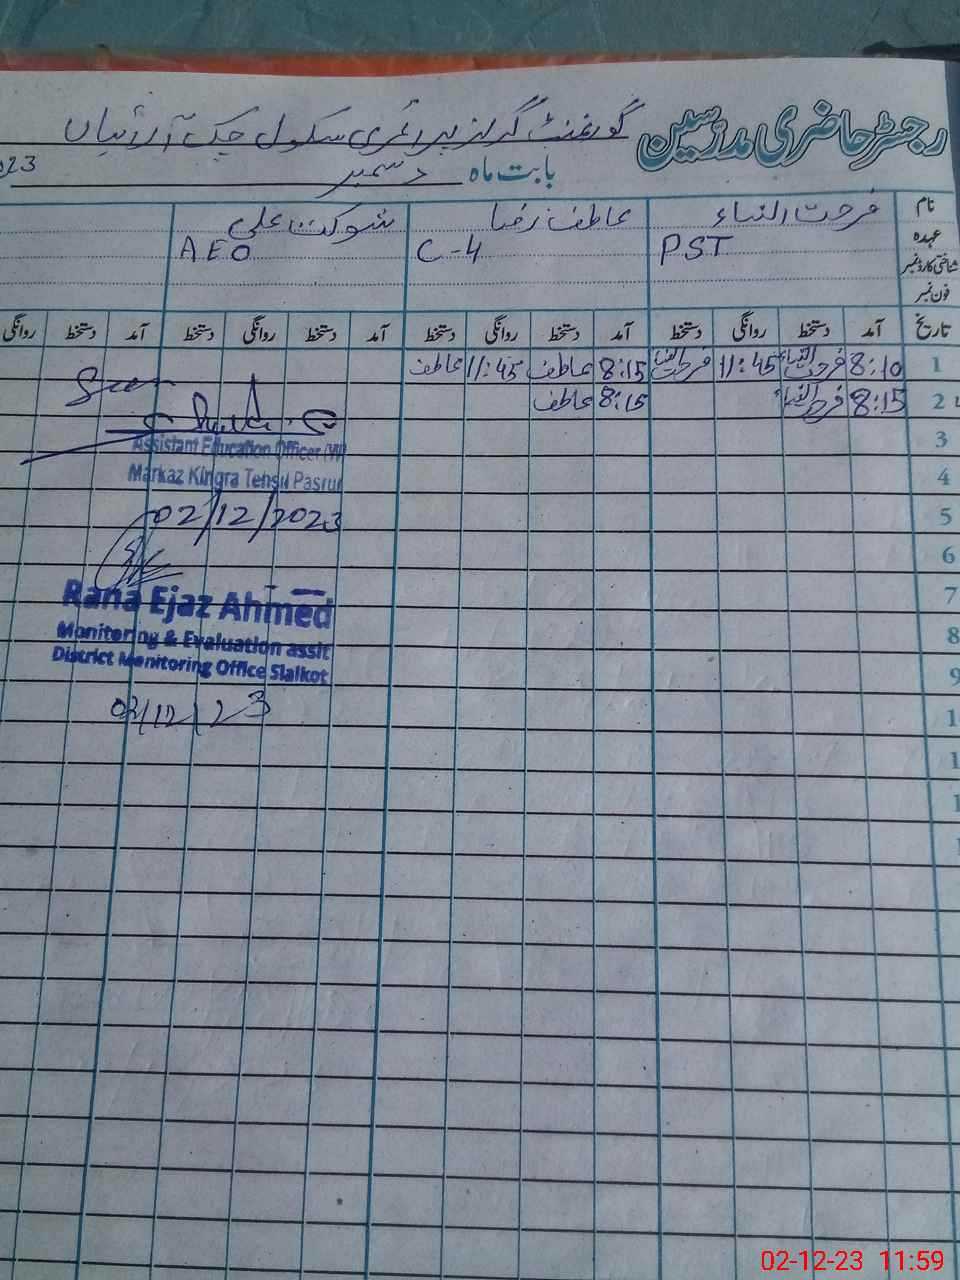 رجسٹر حاضری مدرسین
گورنمنٹ گرلز پرائمری سکول چک آرائیاں
بابت ماہ دسمبر 023
نام فرحت النساء عاطف رضا شوکت علی
عہدہ PST C-4 AEO
شناختی کارڈ نمبر
فون نمبر
تاریخ آمد دستخط روانگی دستخط آمد دستخط روانگی دستخط آمد دستخط روانگی دستخط آمد دستخط روانگی
1 8:10 فرحت النساء 11:45 فرحت النساء 8:15 عاطف 11:45 عاطف
2 8:15 فرحت النساء 8:15 عاطف
3
Assistant Education Officer (W)
4
Markaz Kingra Tehsil Pasrur
5
02/12/2023
6
7
Rana Ejaz Ahmed
8
Monitoring & Evaluation assit
9
District Monitoring Office Sialkot
1
02/12/23
1
1
1
02-12-23 11:59